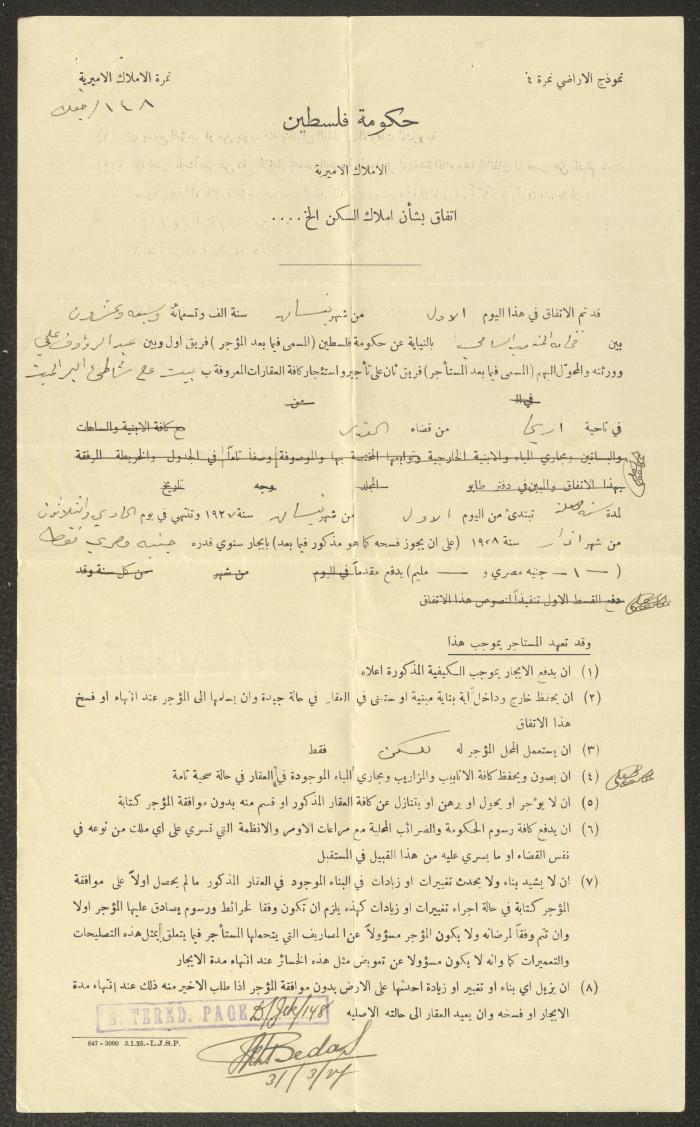 نموذج الاراضي نمرة ٤
نمرة الاملاك الاميرية
١٤٨
حكومة فلسطين
الاملاك الاميرية
اتفاق بشأن املاك السكن الخ....
قد تم الاتفاق في هذا اليوم الاول من شهر نيسان سنة الف وتسعمائة وسبعه وعشرون
بين فخامة المندوب السامي بالنيابة عن حكومة فلسطين (المسمى فيما بعد المؤجر) فريق اول وبين عبد الرؤوف علي
وورثته والمحول اليهم (المسمى فيما بعد المستأجر) فريق ثان على تأجير واستئجار كافة العقارات المعروفة ب بيت على شاطئ البحر الميت
في ال من
في ناحية اريحا من قضاء القدس مع كافة الابنية والساحات
والبساتين ومجاري المياه والابنية الخارجية وتوابعها المختصة بها والموصوفة وصفاً تاماً في الجدول والخريطة المرفقة
بهذا الاتفاق والمبين في دفتر طابو المجلد وجه تاريخ
لمدة سنه تبتدئ من اليوم الاول من شهر نيسان سنة ١٩٢٧ وتنتهي في يوم الحادي والثلاثون
من شهر اذار سنة ١٩٢٨ (على ان يجوز فسحه كما هو مذكور فيما بعد) بايجار سنوي قدره جنيه مصري فقط
( — ١ — جنيه مصري و — مليم) يدفع مقدماً في اليوم من شهر من كل سنة وقد
دفع القسط الاول تنفيذاً لنصوص هذا الاتفاق
وقد تعهد المستاجر بموجب هذا
(١) ان يدفع الايجار بموجب الكيفية المذكورة اعلاه
(٢) ان يحفظ خارج وداخل اية بناية مبنية او ستبنى في العقار في حالة جيدة وان يسلمها الى المؤجر عند انتهاء او فسخ
هذا الاتفاق
(٣) ان يستعمل المحل المؤجر له للسكن فقط
(٤) ان يصون ويحفظ كافة الانابيب والمزاريب ومجاري المياه الموجودة في العقار في حالة صحية تامة
(٥) ان لا يؤجر او يحول او يرهن او يتنازل عن كافة العقار المذكور او قسم منه بدون موافقة المؤجر كتابة
(٦) ان يدفع كافة رسوم الحكومة والضرائب المحلية مع مراعات الاوامر والانظمة التي تسري على اي ملك من نوعه في
نفس القضاء او ما يسري عليه من هذا القبيل في المستقبل
(٧) ان لا يشيد بناء ولا يحدث تغييرات او زيادات في البناء الموجود في العقار المذكور ما لم يحصل اولاً على موافقة
المؤجر كتابة في حالة اجراء تغييرات او زيادات كهذه يلزم ان تكون وفقا لخرائط ورسوم يصادق عليها المؤجر اولا
وان تتم وفقاً لمرضاته ولا يكون المؤجر مسؤولاً عن المصاريف التي يتحملها المستأجر فيما يتعلق بمثل هذه التصليحات
والتعميرات كما وانه لا يكون مسؤولا عن تعويض مثل هذه الخسائر عند انتهاء مدة الايجار
(٨) ان يزيل اي بناء او تغيير او زيادة احدثها على الارض بدون موافقة المؤجر اذا طلب الاخير منه ذلك عند انتهاء مدة
الايجار او فسخه وان يعيد العقار الى حالته الاصليه
ENTERED. PAGE D/Jer/148
847-3000 3.1.25.-L.J.S.P.
31/3/27